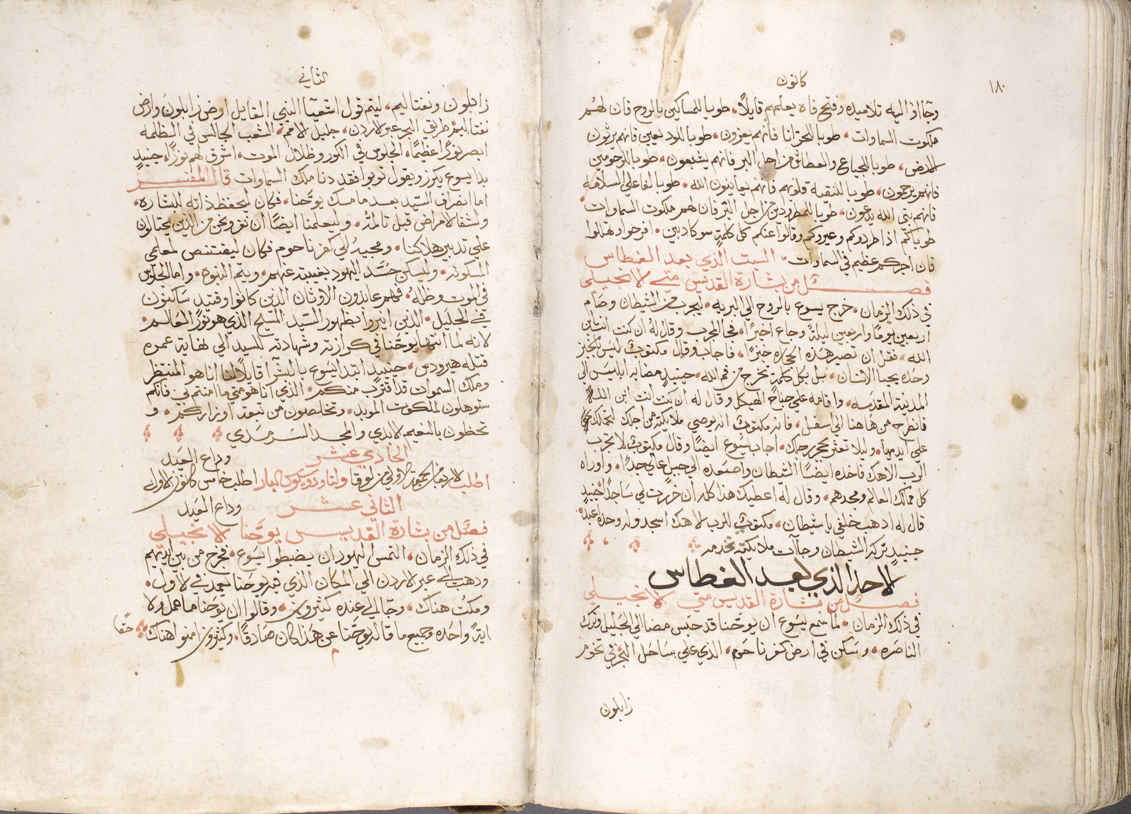 ١٨٠
كانون
وجاؤا اليه تلاميذه وفتح فاه يعلمهم قايلًا طوبا للمساكين بالروح فان لهم
ملكوت السماوات طوبا للحزانا فانهم يعزون طوبا للودعين فانهم يرثون
الارض طوبا للجياع والعطاش من اجل البر فانهم يشبعون طوبا للرحومين
فانهم يرحمون طوبا للنقيه قلوبهم فانهم يعاينون الله طوبا لفاعلي السلامه
فانهم بني الله يدعون طوبا للمطرودين من اجل البر فان لهم ملكوت السماوات
طوباكم اذا طردوكم وعيروكم وقالوا عنكم كل كلمة سو كاذبين افرحوا وتهللوا
فان اجركم عظيم في السماوات السبت الذي بعد الغطاس
فصل من بشارة القديس متي الانجيلي
في ذلك الزمان خرج يسوع بالروح الي البريه ليجرب من الشيطان وصام
اربعين يومًا واربعين ليلة وجاع اخيرًا فجا المجرب وقال له ان كنت انت ابن
الله فقل ان تصير هذه الحجاره خبزًا فاجاب وقال مكتوب ليس بالخبز
وحده يحيا الانسان بل بكل كلمه تخرج من فم الله حينيذٍ مضا به ابليس الي
المدينة المقدسه واقامه علي جناح الهيكل وقال له ان كنت انت ابن الله
فانطرح من هاهنا الي اسفل فانه مكتوب انه يوصي ملايكته من اجلك لتحملك
علي ايديها وليلا تعثر بحجر رجلك اجاب يسوع ايضًا وقال مكتوب لا تجرب
الرب الاهك فاخذه ايضًا الشيطان واصعده الي جبل عالي جدًا واوراه
كل ممالك العالم ومجدهم وقال له اعطيك هذا كله ان خررت لي ساجدًا حينيذٍ
قال له اذهب خلفي ياشيطان مكتوب للرب الاهك اسجد وله وحده اعبد
حينيذٍ تركه الشيطان وجاات ملايكته تخدمه
الاحد الذي بعد الغطاس
فصل من بشارة القديس متي الانجيلي
في ذلك الزمان لما سمع يسوع ان يوحنا قد حبس مضا الي الجليل وترك
الناصره وسكن في ارض كفرناحوم الذي علي ساحل البحر في تخوم
زابلون
الثاني
زابلون ونفتاليم ليتم قول اشعيا النبي القايل ارض زابلون وارض
نفتاليم طريق البحر عبر الاردن جليل الامم الشعب الجالس في الظلمه
ابصر نورًا عظيمًا الجلوس في الكور وظلال الموت اشرق لهم نورًا حينيذٍ
بدا يسوع يكرز ويقول توبوا فقد دنا ملك السماوات قال المفسر
اما انصراف السيد بعد ما مسك يوحنا فكان ليحفظ ذاته للبشاره
والشفا الامراض قبل تالمه وليعلمنا ايضًا ان نفر من الذين يحتالون
علي تدبير هلاكنا ومجيه الي كفرناحوم فكان ليقتنص معلمي
المسكونه وليسكن حسد اليهود بغيبته عنهم ويتم النبوه واما الجلوس
في الموت وظله فهم عابدون الاوثان الدين كانوا وقتيذٍ ساكنون
في الجليل الدين انيروا بظهور السيد المسيح الذي هو نور العالم
لانه لما انتها يوحنا في كرازته وشهادته للسيد الي نهاية عمره
قتله هيرودس حينيذٍ ابتدا يسوع بالبشرا قايلًا انا هو المنتظر
وملك السموات قد اقترب منكم الذي انا هو متي ما امنتم بي فانكم
ستوهلون للملكوت الموبد وتخلصون من تبعة اوزاركم و
تحظون بالنعيم الابدي والمجد السرمدي
الحادي عشر وداع العيد
الثاني عشر وداع العيد
فصل من بشارة القديس يوحنا الانجيلي
في ذلك الزمان التمس اليهود ان يضبطوا يسوع فخرج من بين ايديهم
وذهب الي عبر الاردن الي المكان الذي فيه يوحنا يعمد في الاول
ومكث هناك وجا الي عنده كثيرون وقالوا ان يوحنا ما عمل ولا
اية واحده وجميع ما قاله يوحنا عن هذا كان صادقًا وكثيرون امنوا هناك حقا